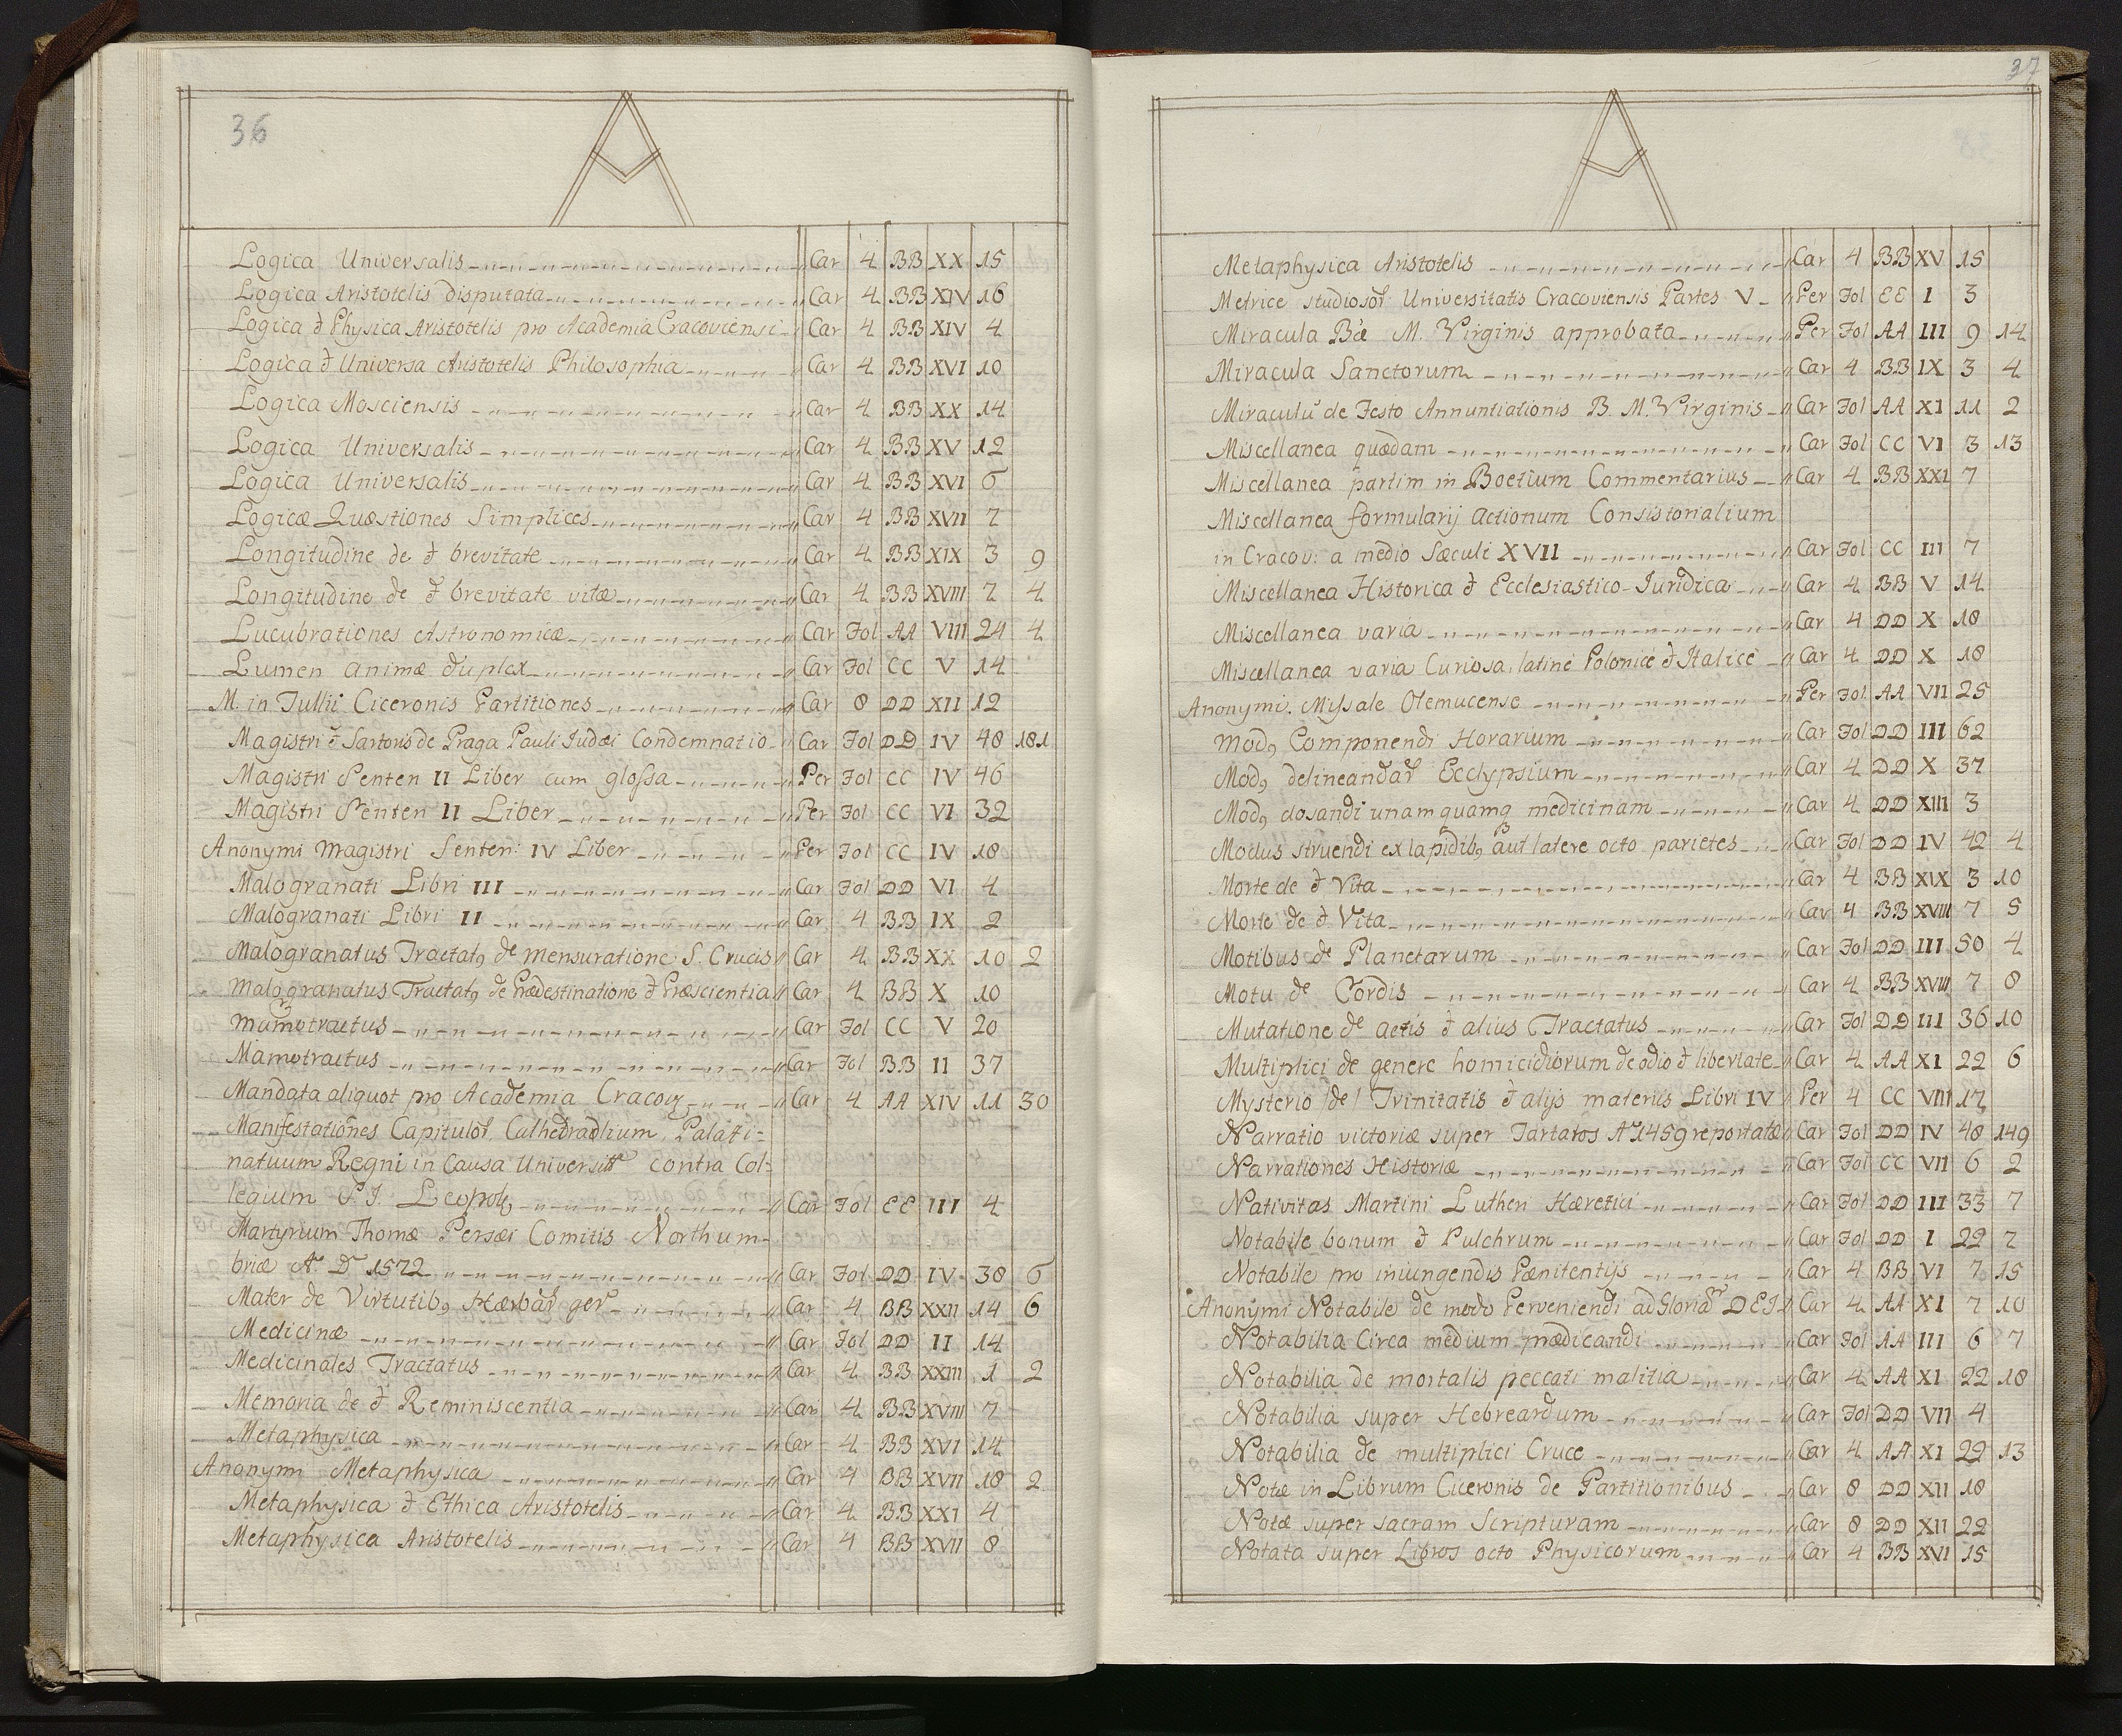 36
A
Logica Universalis Car 4 BB XX 15
Logica Aristotelis disputata Car 4 BB XIV 16
Logica & Physica Aristotelis pro Academia Cracoviensi Car 4 BB XIV 4
Logica & Universa Aristotelis Philosophia Car 4 BB XVI 10
Logica Mosciensis Car 4 BB XX 14
Logica Universalis Car 4 BB XV 12
Logica Universalis Car 4 BB XVI 6
Logicæ Quæstiones Simplices Car 4 BB XVII 7
Longitudine de & brevitate Car 4 BB XIX 3 9
Longitudine de & brevitate vitæ Car 4 BB XVIII 7 4
Lucubrationes Astronomicæ Car Fol AA VIII 24 4
Lumen animæ duplex Car Fol CC V 14
M. in Tullii Ciceronis Partitiones Car 8 DD XII 12
Magistri & Sartoris de Praga Pauli Iudæi Condemnatio Car Fol DD IV 48 181
Magistri Senten II Liber cum glossa Per Fol CC IV 46
Magistri Senten II Liber Per Fol CC VI 32
Anonymi Magistri Senten: IV Liber Per Fol CC IV 18
Malogranati Libri III Car Fol DD VI 4
Malogranati Libri II Car 4 BB IX 2
Malogranatus Tractatꝯ de mensuratione S. Crucis Car 4 BB XX 10 2
Malogranatus Tractatꝯ de Prædestinatione & Præscientia Car 4 BB X 10
Mamotractus Car Fol CC V 20
Mamotractus Car Fol BB II 37
Mandata aliquot pro Academia Cracov Car 4 AA XIV 11 30
Manifestationes Capituloꝝ Cathedradlium, Palati=
natuum Regni in Causa Universitt contra Col=
legium S. J. Leopol Car Fol EE III 4
Martyrium Thomæ Persæi Comitis Northum-
briæ Ao Di 1572 Car Fol DD IV 38 6
Mater de Virtutibꝯ Herbaꝝ Car 4 BB XXII 14 6
Medicinæ Car Fol DD II 14
Medicinales Tractatus Car 4 BB XXIII 1 2
Memoria de & Reminiscentia Car 4 BB XVIII 7
Metaphysica Car 4 BB XVI 14
Anonymi Metaphysica Car 4 BB XVII 18 2
Metaphysica & Ethica Aristotelis Car 4 BB XXI 4
Metaphysica Aristotelis Car 4 BB XVII 8
37
A
Metaphysica Aristotelis Car 4 BB XV 15
Metrice studiosoꝝ Universitatis Cracoviensis Partes V Per Fol EE I 3
Miracula Bæ M. Virginis approbata Per Fol AA III 9 14
Miracula Sanctorum Car 4 BB IX 3 4
Miraculū de Festo Annuntiationis B. M. Virginis Car Fol AA XI 11 2
Miscellanea quædam Car Fol CC VI 3 13
Miscellanea partim in Boetium Commentarius Car 4 BB XXI 7
Miscellanea formularij actionum Consistorialium
in Cracov: a medio Sæculi XVII Car Fol CC III 7
Miscellanea Historica & Ecclesiastico-Iuridica Car 4 BB V 14
Miscellanea varia Car 4 DD X 18
Miscellanea varia Curiosa, latine Polonice & Italice Car 4 DD X 18
Anonymi. Missale Olemucense Per Fol AA VII 25
Modꝯ Componendi Horarium Car Fol DD III 62
Modꝯ delineandaꝝ Ecclypsium Car 4 DD X 37
Modꝯ dosandi unamquamq medicinam Car 4 DD XIII 3
Modus struendi ex lapidibꝯ aut latere octo parietes Car Fol DD IV 42 4
Morte de & Vita Car 4 BB XIX 3 10
Morte de & Vita Car 4 BB XVIII 7 5
Motibus de Planetarum Car Fol DD III 50 4
Motu de Cordis Car 4 BB XVIII 7 8
Mutatione de aetis & alius Tractatus Car Fol DD III 36 10
Multiplici de genere homicidiorum de odio & libertate Car 4 AA XI 22 6
Mysterio /de/ Trinitatis & alijs materiis Libri IV Per 4 CC VIII 17
Narratio victoriæ super Tartatos Ao 1459 reportatæ Car Fol DD IV 48 149
Narrationes Historiæ Car Fol CC VII 6 2
Nativitas Martini Lutheri Hæretici Car Fol DD III 33 7
Notabile bonum & Pulchrum Car Fol DD I 22 7
Notabile pro iniungendis Pænitentijs Car 4 BB VI 7 15
Anonymi Notabile de modo Perveniendi ad Gloriam DEI Car 4 AA XI 7 10
Notabilia Circa medium prædicandi Car Fol AA III 6 7
Notabilia de mortalis peccati malitia Car 4 AA XI 22 18
Notabilia super Hebreardum Car Fol DD VII 4
Notabilia de multiplici Cruce Car 4 AA XI 22 13
Notæ in Librum Ciceronis de Partitionibus Car 8 DD XII 18
Notæ super sacram Scripturam Car 8 DD XII 22
Notata super Libros octo Physicorum Car 4 BB XVI 15